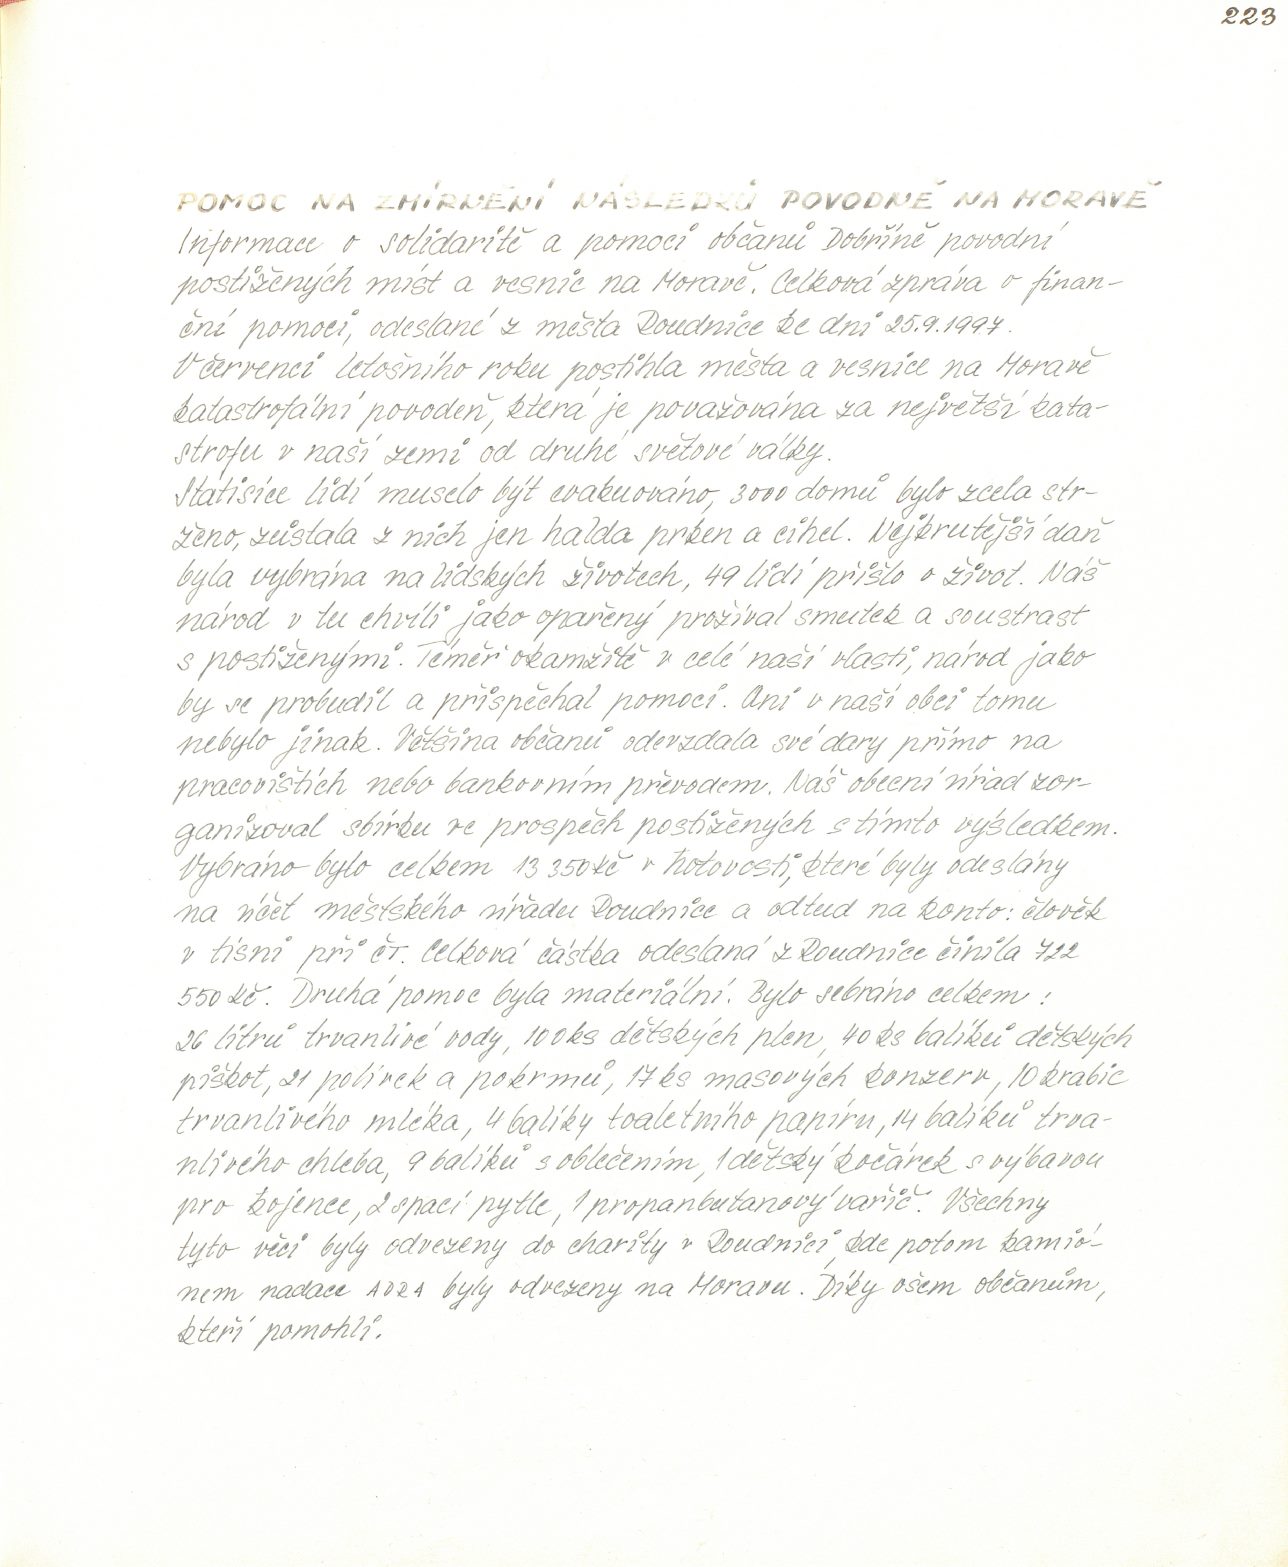 223
POMOC NA ZMÍRNĚNÍ NÁSLEDKŮ POVODNĚ NA MORAVĚ
Informace o solidaritě a pomoci občanů Dobříně povodní
postižených míst a vesnic na Moravě. Celková zpráva o finan-
ční pomoci, odeslané z města Roudnice ke dni 25.9.1997.
V červenci letošního roku postihla města a vesnice na Moravě
katastrofální povodeň, která je považována za největší kata-
strofu v naší zemi od druhé světové války.
Statisíce lidí muselo být evakuováno, 3000 domů bylo zcela str-
ženo, zůstala z nich jen halda prken a cihel. Nejkrutější daň
byla vybrána na lidských životech, 49 lidí přišlo o život. Náš
národ v tu chvíli jako opařený prožíval smutek a soustrast
s postiženými. Téměř okamžitě v celé naší vlasti, národ jako
by se probudil a přispěchal pomocí. Ani v naší obci tomu
nebylo jinak. Většina občanů odevzdala své dary přímo na
pracovištích nebo bankovním převodem. Náš obecní úřad zor-
ganizoval sbírku ve prospěch postižených s tímto výsledkem.
Vybráno bylo celkem 13 350 kč v hotovosti, které byly odeslány
na účet městského úřadu Roudnice a odtud na konto: člověk
v tísni při ČT. Celková částka odeslaná z Roudnice činila 722
550 kč. Druhá pomoc byla materiální. Bylo sebráno celkem:
26 litrů trvanlivé vody, 100 ks dětských plen, 40 ks balíků dětských
piškot, 21 polívek a pokrmů, 17 ks masových konzerv, 10 krabic
trvanlivého mléka, 4 balíky toaletního papíru, 14 balíků trva-
nlivého chleba, 9 balíků s oblečením, 1 dětský kočárek s výbavou
pro kojence, 2 spací pytle, 1 propanbutanový vařič. Všechny
tyto věci byly odvezeny do charity v Roudnici, kde potom kamió-
nem nadace ADRA byly odvezeny na Moravu. Díky všem občanům,
kteří pomohli.